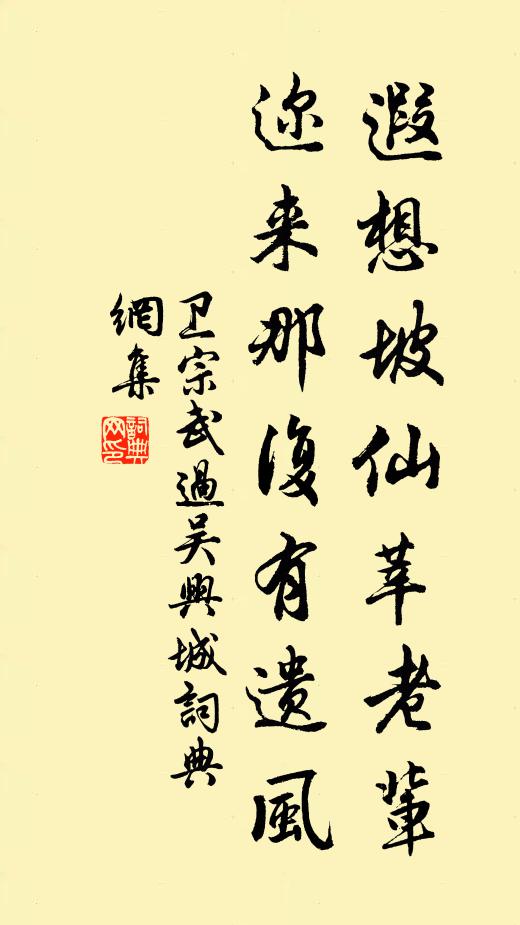 遐想坡仙莘老輩
迩来那復有遗風
卫宗武過吴興城詞典
網集
詞典
网印